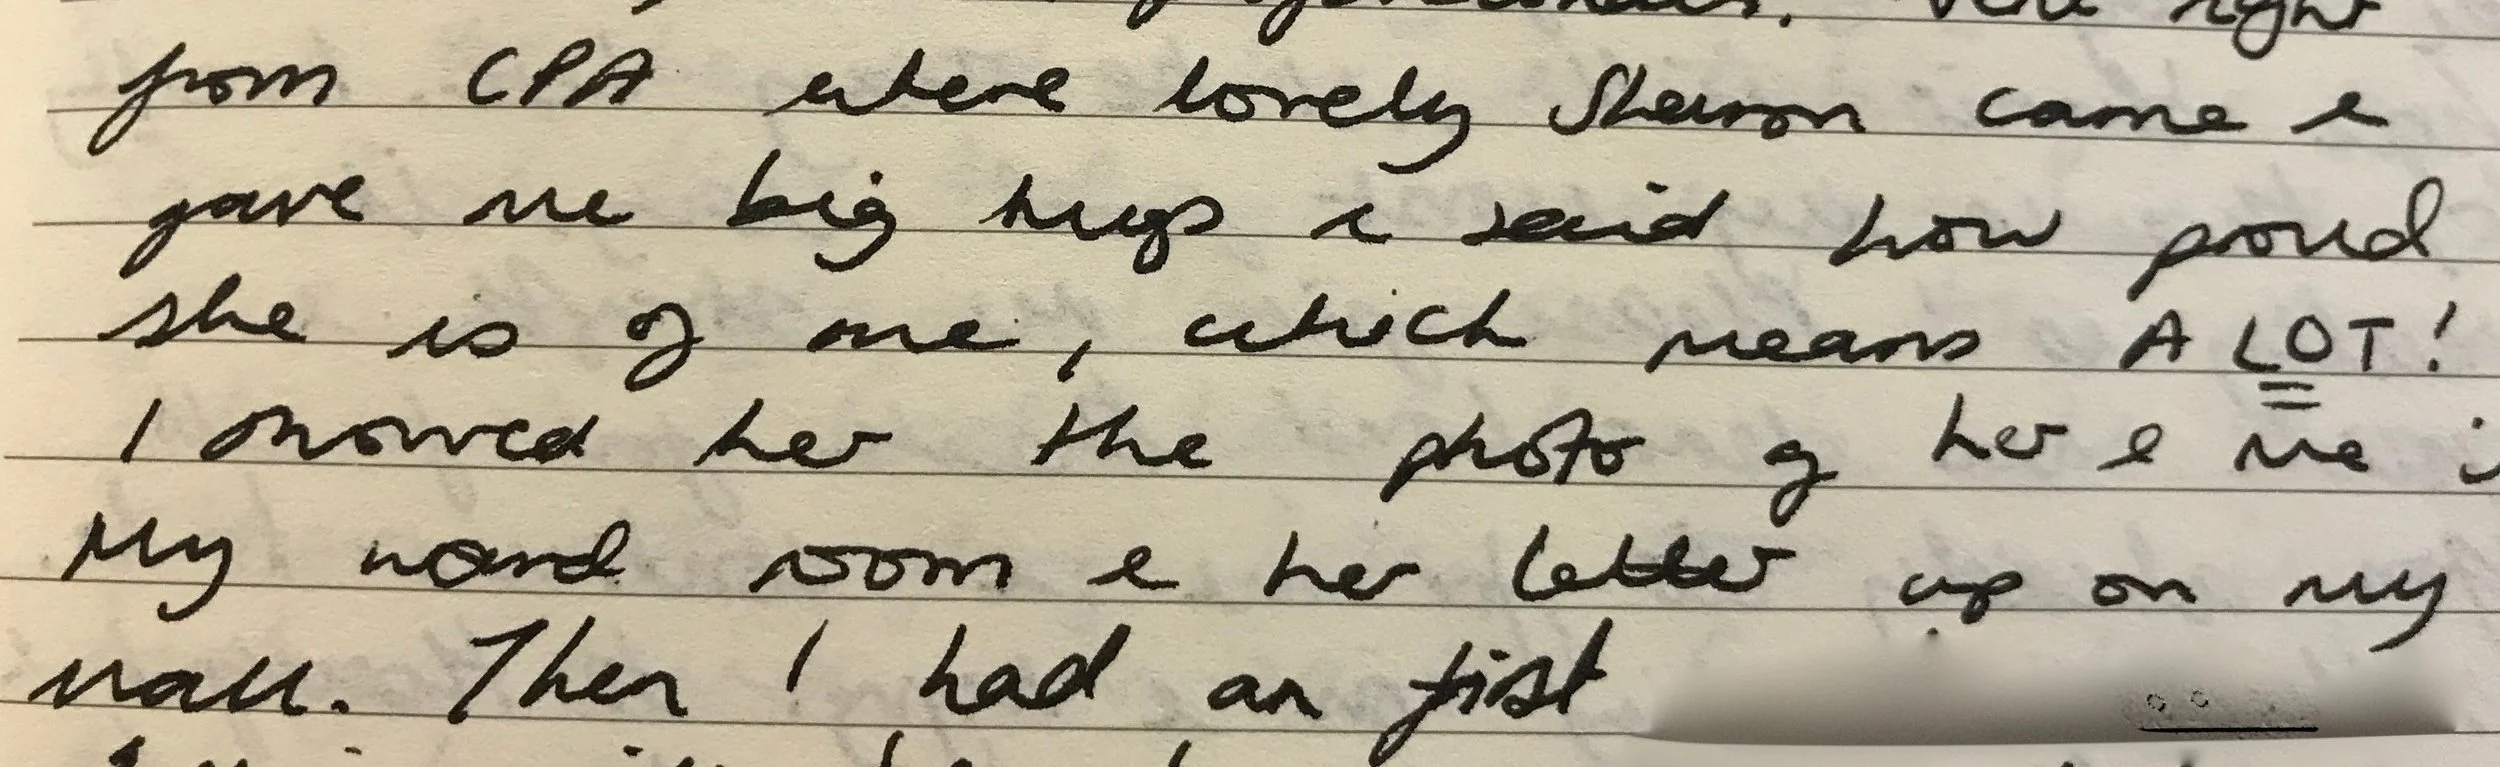 right
from CPA where lovely Sharon came &
gave me big hugs & said how proud
she is of me, which means A LOT!
I showed her the photo of her & me i
My ward room & her letter up on my
wall. Then I had an first